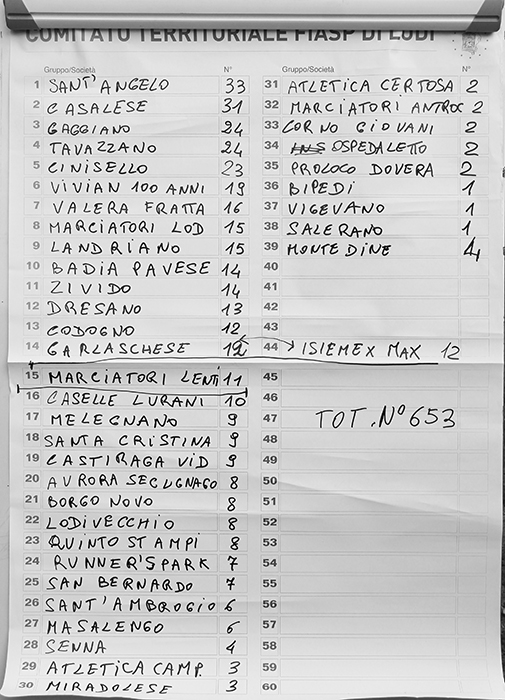 COMITATO TERRITORIALE FIASP DI LODI
Gruppo/Società N°
1 SANT'ANGELO 33
2 CASALESE 31
3 GAGGIANO 24
4 TAVAZZANO 24
5 CINISELLO 23
6 VIVIAN 100 ANNI 19
7 VALERA FRATTA 16
8 MARCIATORI LOD 15
9 LANDRIANO 15
10 BADIA PAVESE 14
11 ZIVIDO 14
12 DRESANO 13
13 CODOGNO 12
14 GARLASCHESE 12
15 MARCIATORI LENTI 11
16 CASELLE LURANI 10
17 MELEGNANO 9
18 SANTA CRISTINA 9
19 CASTIRAGA VID 9
20 AURORA SECUGNAGO 8
21 BORGO NOVO 8
22 LODIVECCHIO 8
23 QUINTO STAMPI 8
24 RUNNER'SPARK 7
25 SAN BERNARDO 7
26 SANT'AMBROGIO 6
27 MASALENGO 6
28 SENNA 4
29 ATLETICA CAMP. 3
30 MIRADOLESE 3
Gruppo/Società N°
31 ATLETICA CERTOSA 2
32 MARCIATORI ANTROC 2
33 CORNO GIOVANI 2
34 OSPEDALETTO 2
35 PROLOCO DOVERA 2
36 BIPEDI 1
37 VIGEVANO 1
38 SALERANO 1
39 MONTEDINE
40
41
42
43
44 ISIEMEX MAX 12
45
46
47 TOT. N° 653
48
49
50
51
52
53
54
55
56
57
58
59
60